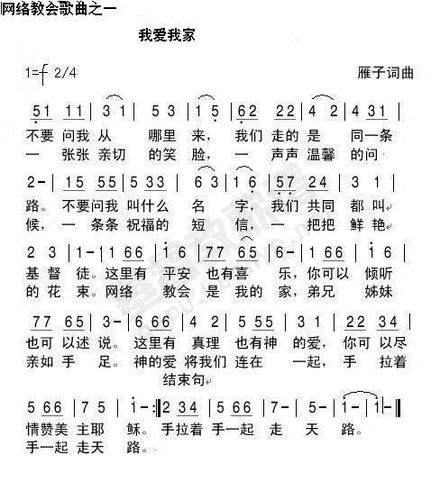 网络教会歌曲之一
我爱我家
1=f 2/4 雁子词曲
51 11 | 3 1 | 5 3 | 1 5 | 62 22 | 4 2 | 4 31 |
不要问我从 哪里来，我们走的是 同一条
一 张张亲切的笑脸，一 声声温馨的问
2- | 15 55 | 5 33 | 6 3 | 1 6 | 57 24 |
路。不要问我叫什么名 字，我们共同都叫
候，一 条条祝福的短 信，一 把把鲜艳
2 3 | 1 66 | 1 66 | 77 65 | 6- | 1 66 | 1 66 |
基督徒。这里有平安也有喜 乐，你可以倾听
的花束。网络 教会是我的 家，弟兄 姊妹
77 65 | 3- | 6 66 | 1 2 | 5 5 | 3 1 | 22 34 |
也可以述 说。这里有真理也有神的爱，你可以尽
亲如手 足。神的爱将我们连在 一起，手 拉着
结束句
5 66 | 7 7 | 1- :‖ 2 34 | 5 66 | 7 5 | 1- | 1- ‖
情赞美主耶 稣。手拉着手一起走 天 路。
手一起走天 路。